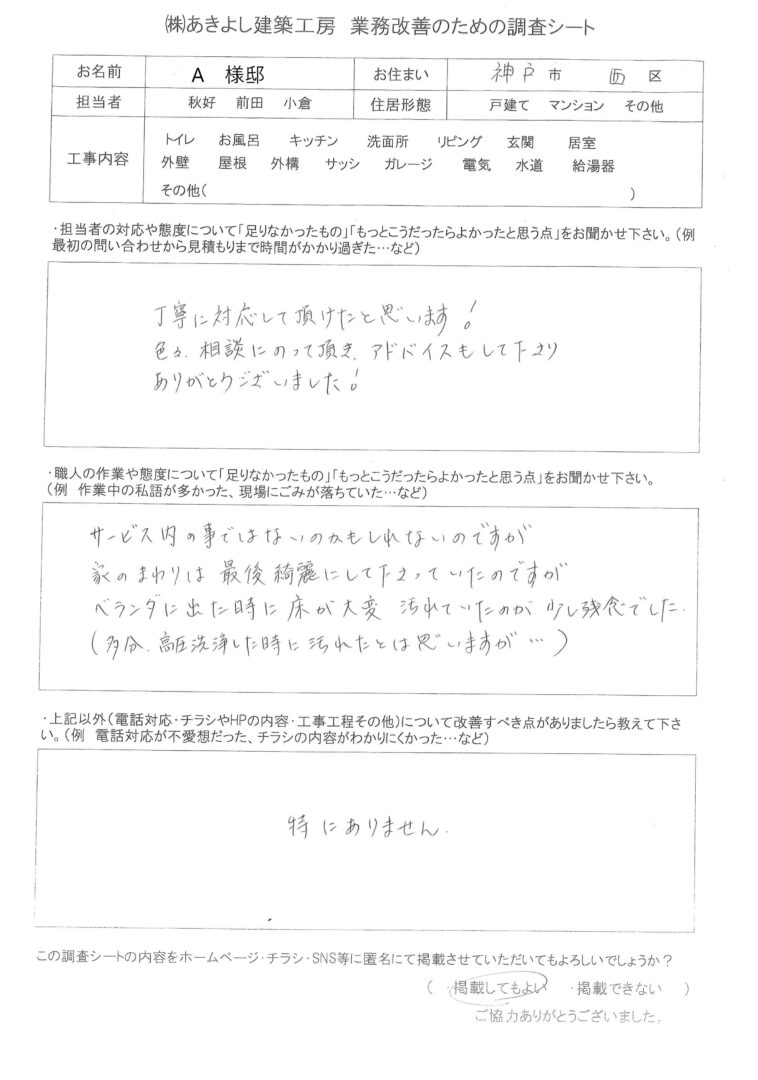 ㈱あきよし建築工房 業務改善のための調査シート
お名前 A 様邸 お住まい 神戸 市 西 区
担当者 秋好 前田 小倉 住居形態 戸建て マンション その他
工事内容
トイレ お風呂 キッチン 洗面所 リビング 玄関 居室
外壁 屋根 外構 サッシ ガレージ 電気 水道 給湯器
その他( )
・担当者の対応や態度について「足りなかったもの」「もっとこうだったらよかったと思う点」をお聞かせ下さい。(例
最初の問い合わせから見積もりまで時間がかかり過ぎた…など)
丁寧に対応して頂けたと思います!
色々、相談にのって頂き、アドバイスもして下さり
ありがとうございました!
・職人の作業や態度について「足りなかったもの」「もっとこうだったらよかったと思う点」をお聞かせ下さい。
(例 作業中の私語が多かった、現場にごみが落ちていた…など)
サービス内の事ではないのかもしれないのですが
家のまわりは 最後 綺麗にして下さっていたのですが
ベランダに出た時に 床が大変 汚れていたのが 少し残念でした.
(多分、高圧洗浄した時に 汚れたとは思いますが…)
・上記以外(電話対応・チラシやHPの内容・工事工程その他)について改善すべき点がありましたら教えて下さ
い。(例 電話対応が不愛想だった、チラシの内容がわかりにくかった…など)
特にありません.
この調査シートの内容をホームページ・チラシ・SNS等に匿名にて掲載させていただいてもよろしいでしょうか?
( ・掲載してもよい ・掲載できない )
ご協力ありがとうございました。